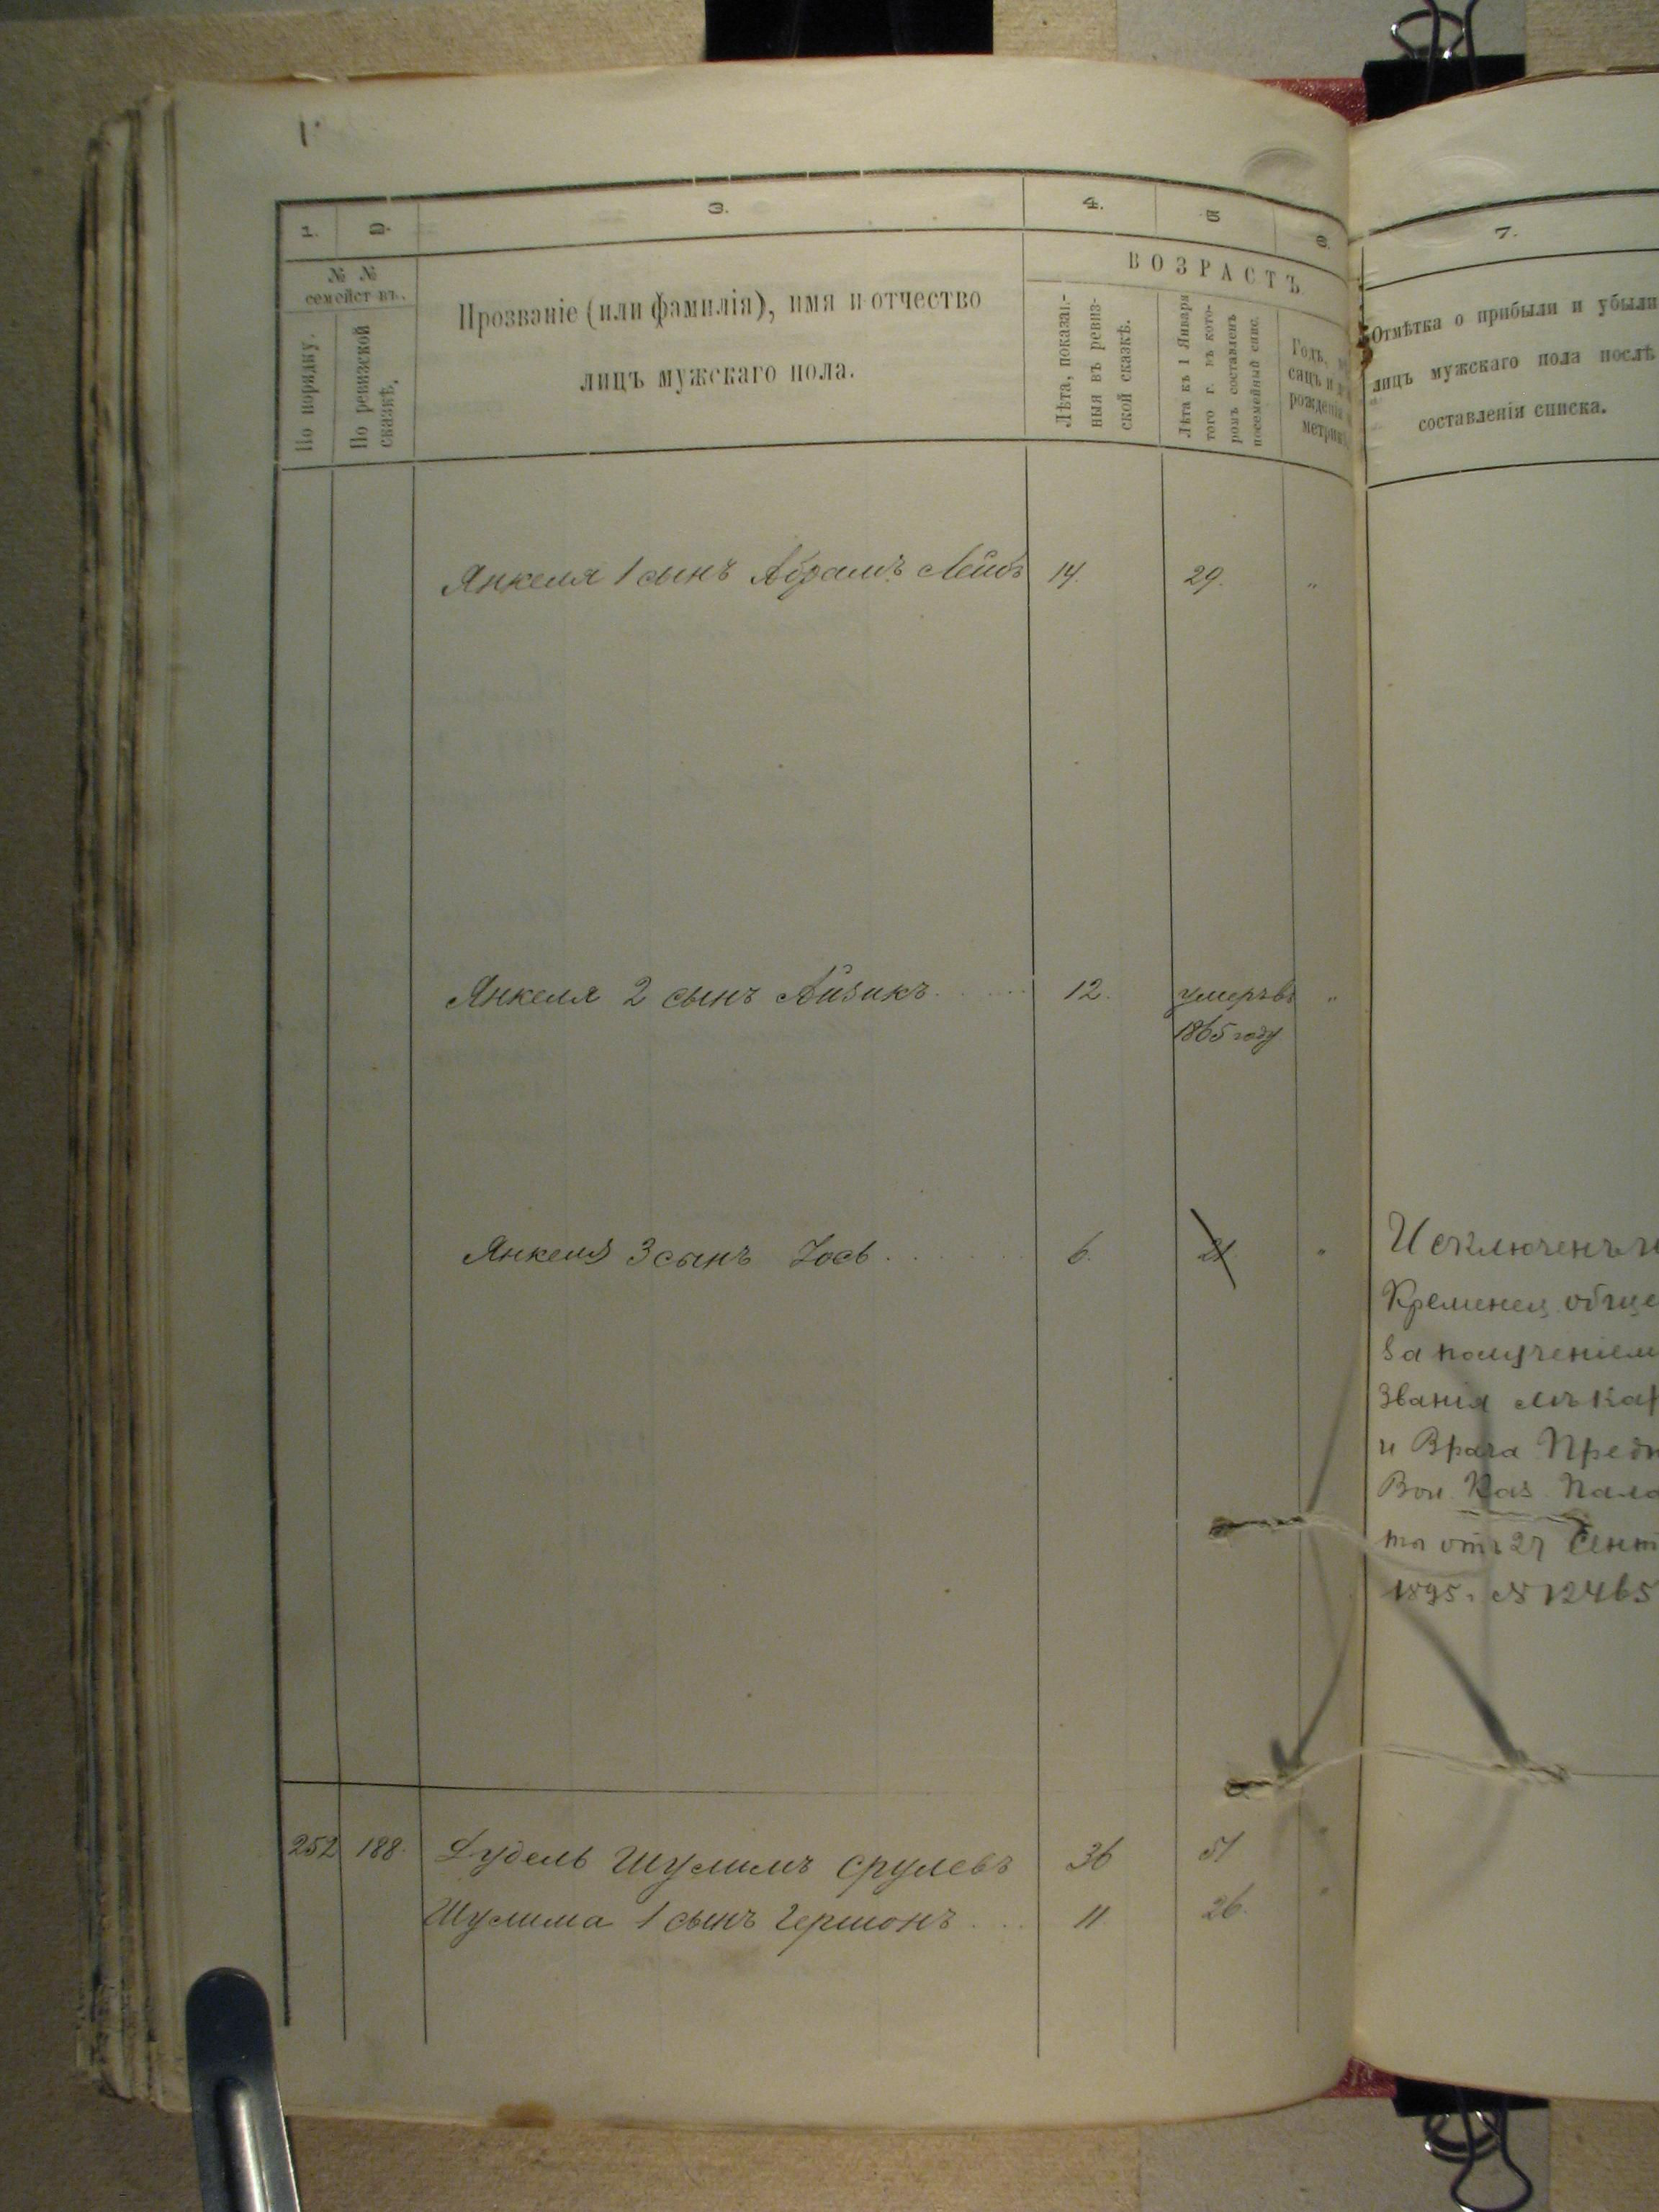 1. 2. 3. 4. 5 6. 7.
№ № семействъ.
По порядку.
По ревизской сказкѣ.
Прозваніе (или фамилія), имя и отчество
лицъ мужскаго пола.
ВОЗРАСТЪ
Лѣта, показан-
ныя въ ревиз-
ской сказкѣ.
Лѣта къ 1 Января
того г. въ кото-
ромъ составленъ
посемейный спис.
Годъ,
сацъ и
рожденія
метрик
Отмѣтка о прибыли и убыли
лицъ мужскаго пола послѣ
составленія списка.
Янкеля 1 сынъ Абрамъ Лейбъ 14. 29. "
Янкеля 2 сынъ Айзикъ 12. умеръ въ "
1865 году
Янкеля 3 сынъ Іось 6. 21 "
Исключенъ и
Кременец. обще
за полученіем
званія лѣкар
и Врача Предп
Вол. Каз. Пала
ты отъ 27 Сент
1895 г. № 12465
252 188. Дудель Шулимъ Срулевъ 36 51 "
Шулима 1 сынъ Гершонъ 11. 26. "